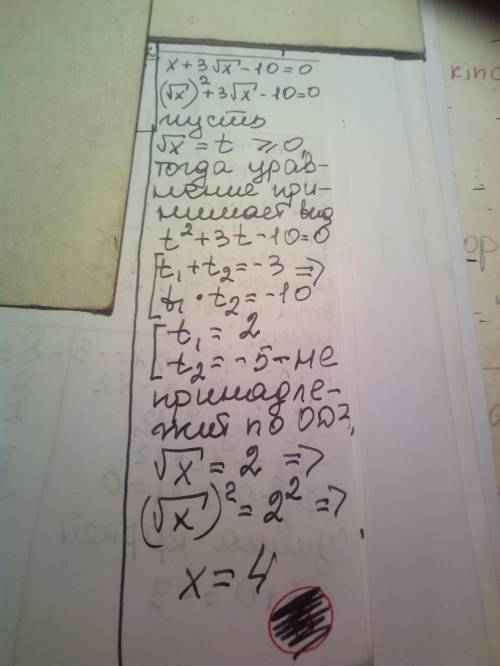 x+3√x-10=0
(√x)²+3√x-10=0
пусть
√x=t⩾0,
тогда урав-
нение при-
нимает вид
t²+3t-10=0
[t₁+t₂=-3 =>
[t₁•t₂=-10
[t₁=2
[t₂=-5-не
принадле-
жит по ОДЗ,
√x=2 =>
(√x)²=2² =>
x=4
kino